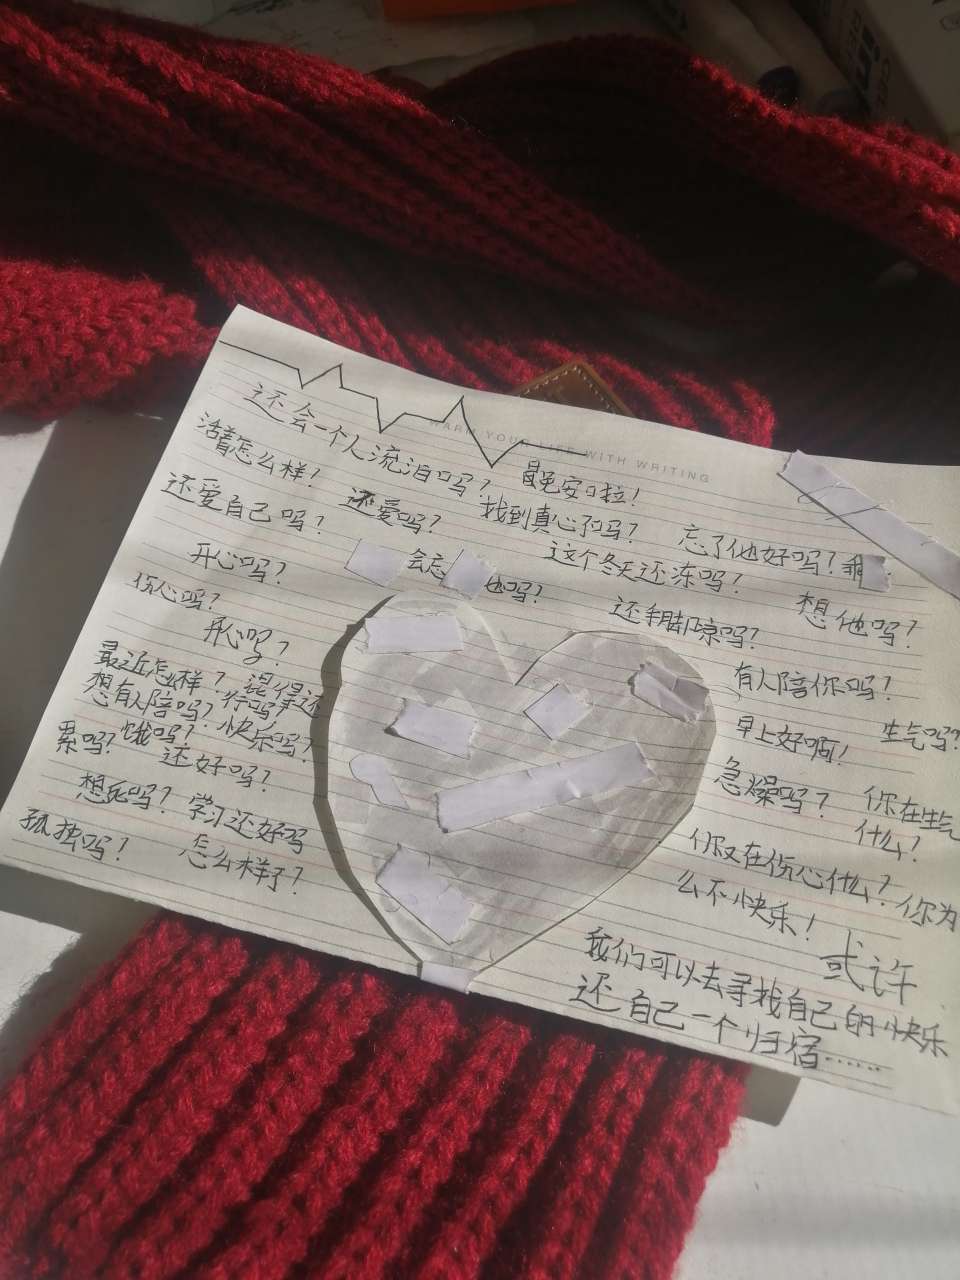 WARM YOUR LIFE WITH WRITING
还会一个人流泪吗?
活着怎么样!
晚安啦!
还爱自己吗?
还爱吗?
找到真心了吗?
忘了他好吗!
开心吗?
会忘
他吗?
这个冬天还冻吗?
想他吗?
伤心吗?
开心吗?
还手脚凉吗?
有人陪你吗?
最近怎么样? 混得还
行吗?
想有人陪吗?
快乐吗?
饿吗?
累吗?
还好吗?
早上好啊!
生气吗?
想死吗?
学习还好吗
急燥吗?
你在生气
什么!
孤独吗?
怎么样了?
你又在伤心什么?
你为
么不快乐!
或许
我们可以去寻找自己的快乐
还自己一个归宿……